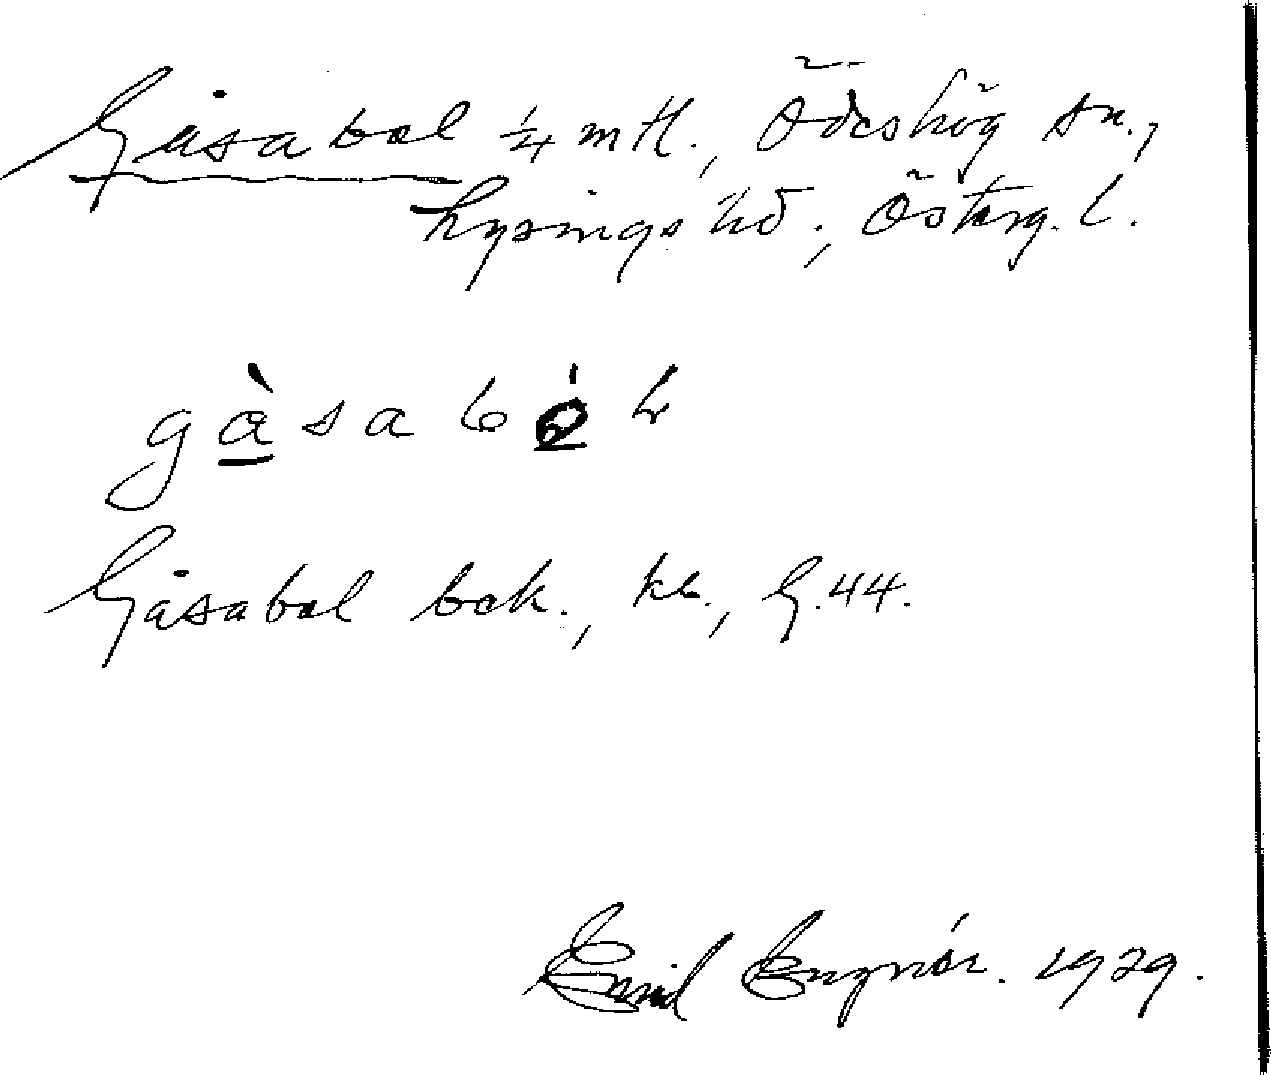 Gåsabol 1/4 mtl., Ödeshög sn.,
Lysings hd., Österg. l.
gàsaból
Gåsabol bok., kb., G. 44.
Emil 1929.